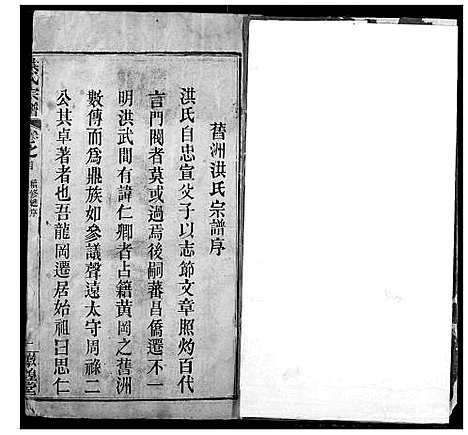 舊洲洪氏宗譜序
洪氏自忠宣父子以志節文章照灼百代
言門閥者莫或過焉後嗣蕃昌僑遷不一
明洪武間有諱仁卿者占籍黃岡之舊洲
數傳而爲鼎族如參議聲遠太守周祿二
公其卓著者也吾龍岡遷居始祖曰思仁
洪氏宗譜
卷之首
續修譜序
一
敦煌堂